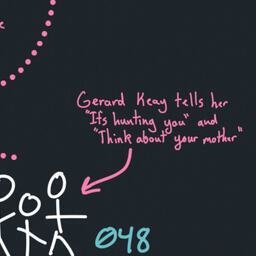 Gerard Keay tells her
"It's hunting you" and
"Think about your mother"
048